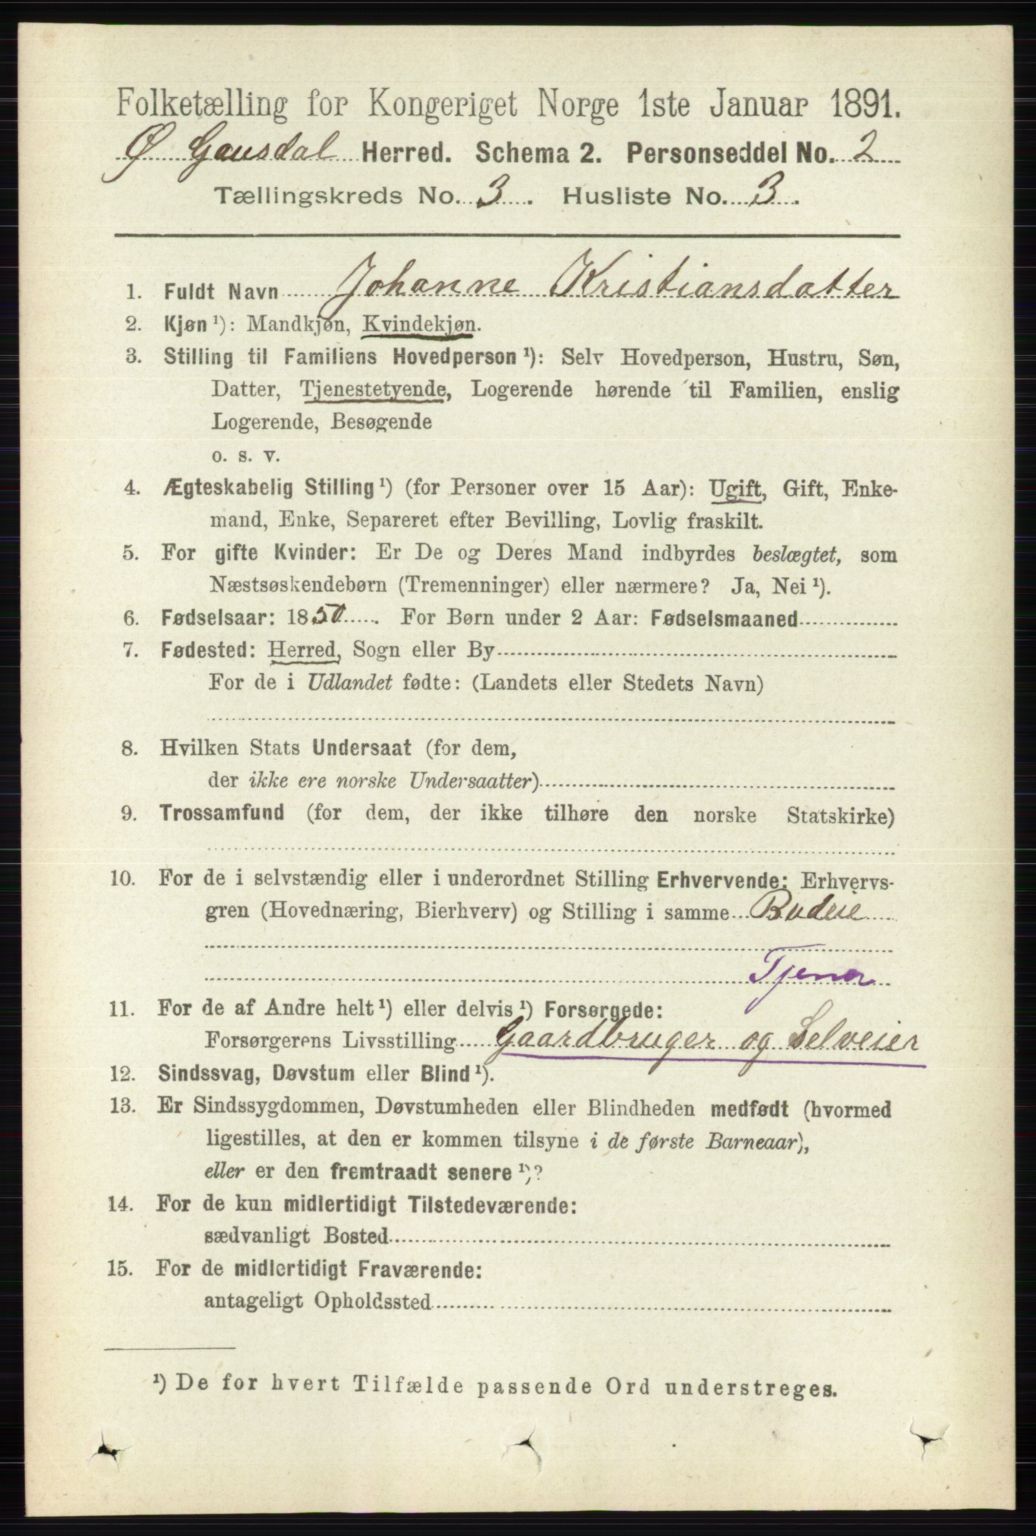 Folketælling for Kongeriget Norge 1ste Januar 1891.
Ø Gausdal Herred. Schema 2. Personseddel No. 2
Tællingskreds No. 3. Husliste No. 3.
1. Fuldt Navn Johanne Kristiansdatter
2. Kjøn ¹): Mandkjøn, Kvindekjøn.
3. Stilling til Familiens Hovedperson ¹): Selv Hovedperson, Hustru, Søn,
Datter, Tjenestetyende, Logerende hørende til Familien, enslig
Logerende, Besøgende
o. s. v.
4. Ægteskabelig Stilling ¹) (for Personer over 15 Aar): Ugift, Gift, Enke-
mand, Enke, Separeret efter Bevilling, Lovlig fraskilt.
5. For gifte Kvinder: Er De og Deres Mand indbyrdes beslægtet, som
Næstsøskendebørn (Tremenninger) eller nærmere? Ja, Nei ¹).
6. Fødselsaar: 1850. For Børn under 2 Aar: Fødselsmaaned
7. Fødested: Herred, Sogn eller By
For de i Udlandet fødte: (Landets eller Stedets Navn)
8. Hvilken Stats Undersaat (for dem,
der ikke ere norske Undersaatter)
9. Trossamfund (for dem, der ikke tilhøre den norske Statskirke)
10. For de i selvstændig eller i underordnet Stilling Erhvervende: Erhvervs-
gren (Hovednæring, Bierhverv) og Stilling i samme Budeie
Tjener
11. For de af Andre helt ¹) eller delvis ¹) Forsørgede:
Forsørgerens Livsstilling Gaardbruger og Selveier
12. Sindssvag, Døvstum eller Blind ¹).
13. Er Sindssygdommen, Døvstumheden eller Blindheden medfødt (hvormed
ligestilles, at den er kommen tilsyne i de første Barneaar),
eller er den fremtraadt senere ¹)?
14. For de kun midlertidigt Tilstedeværende:
sædvanligt Bosted
15. For de midlertidigt Fraværende:
antageligt Opholdssted
¹) De for hvert Tilfælde passende Ord understreges.